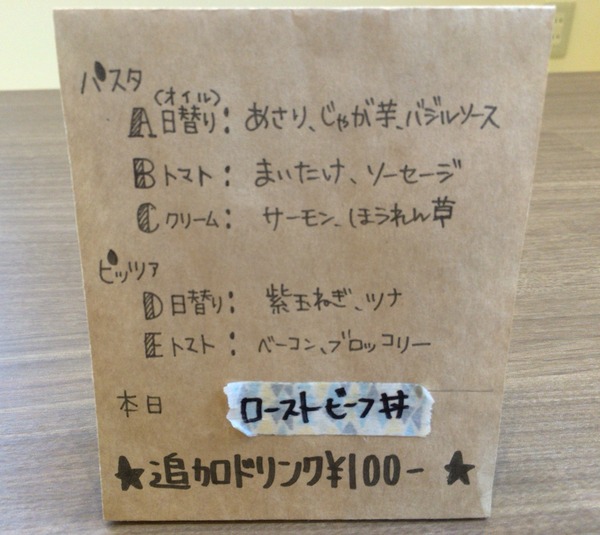 パスタ
(オイル)
A 日替り: あさり、じゃが芋、バジルソース
B トマト: まいたけ、ソーセージ
C クリーム: サーモン、ほうれん草
ピッツァ
D 日替り: 紫玉ねぎ、ツナ
E トマト: ベーコン、ブロッコリー
本日 ローストビーフ丼
★追加ドリンク¥100-★